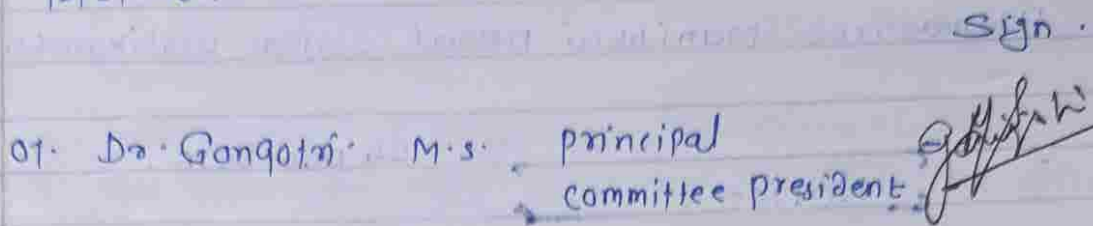 Sign.
01. Dr. Gangotri. M.S. principal
committee president